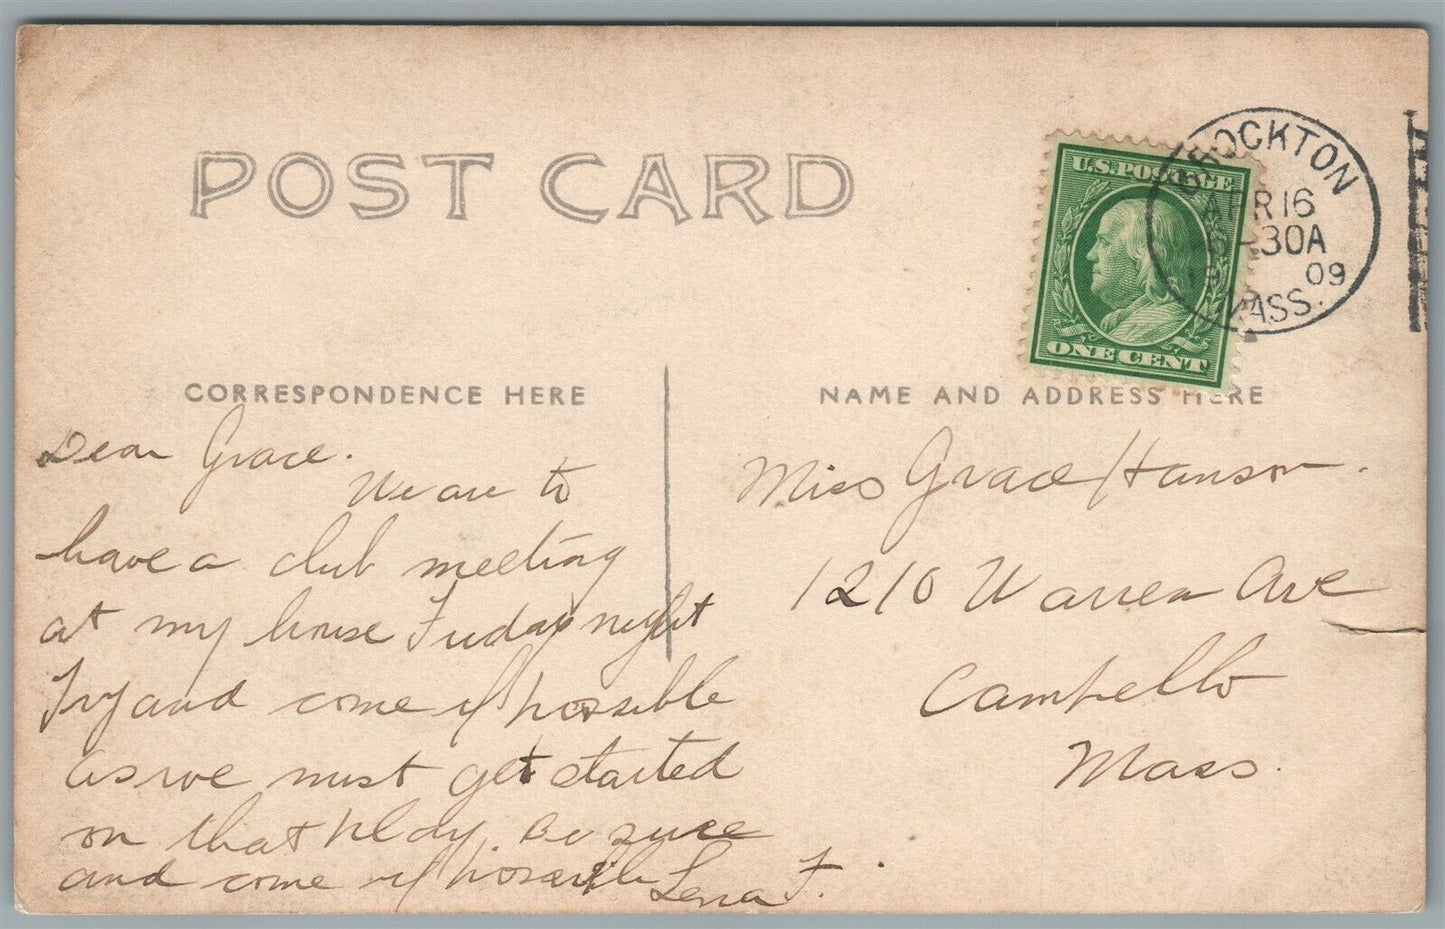 POST CARD
U.S.POSTAGE
ONE CENT
BROCKTON
APR 16
30A
09
MASS.
CORRESPONDENCE HERE
NAME AND ADDRESS HERE
Dear Grace.
We are to
have a club meeting
at my house Friday night
Try and come if possible
as we must get started
on that play. Be sure
and come if possible Lena F.
Miss Grace Hanson.
1210 Warren Ave
Campello
Mass.